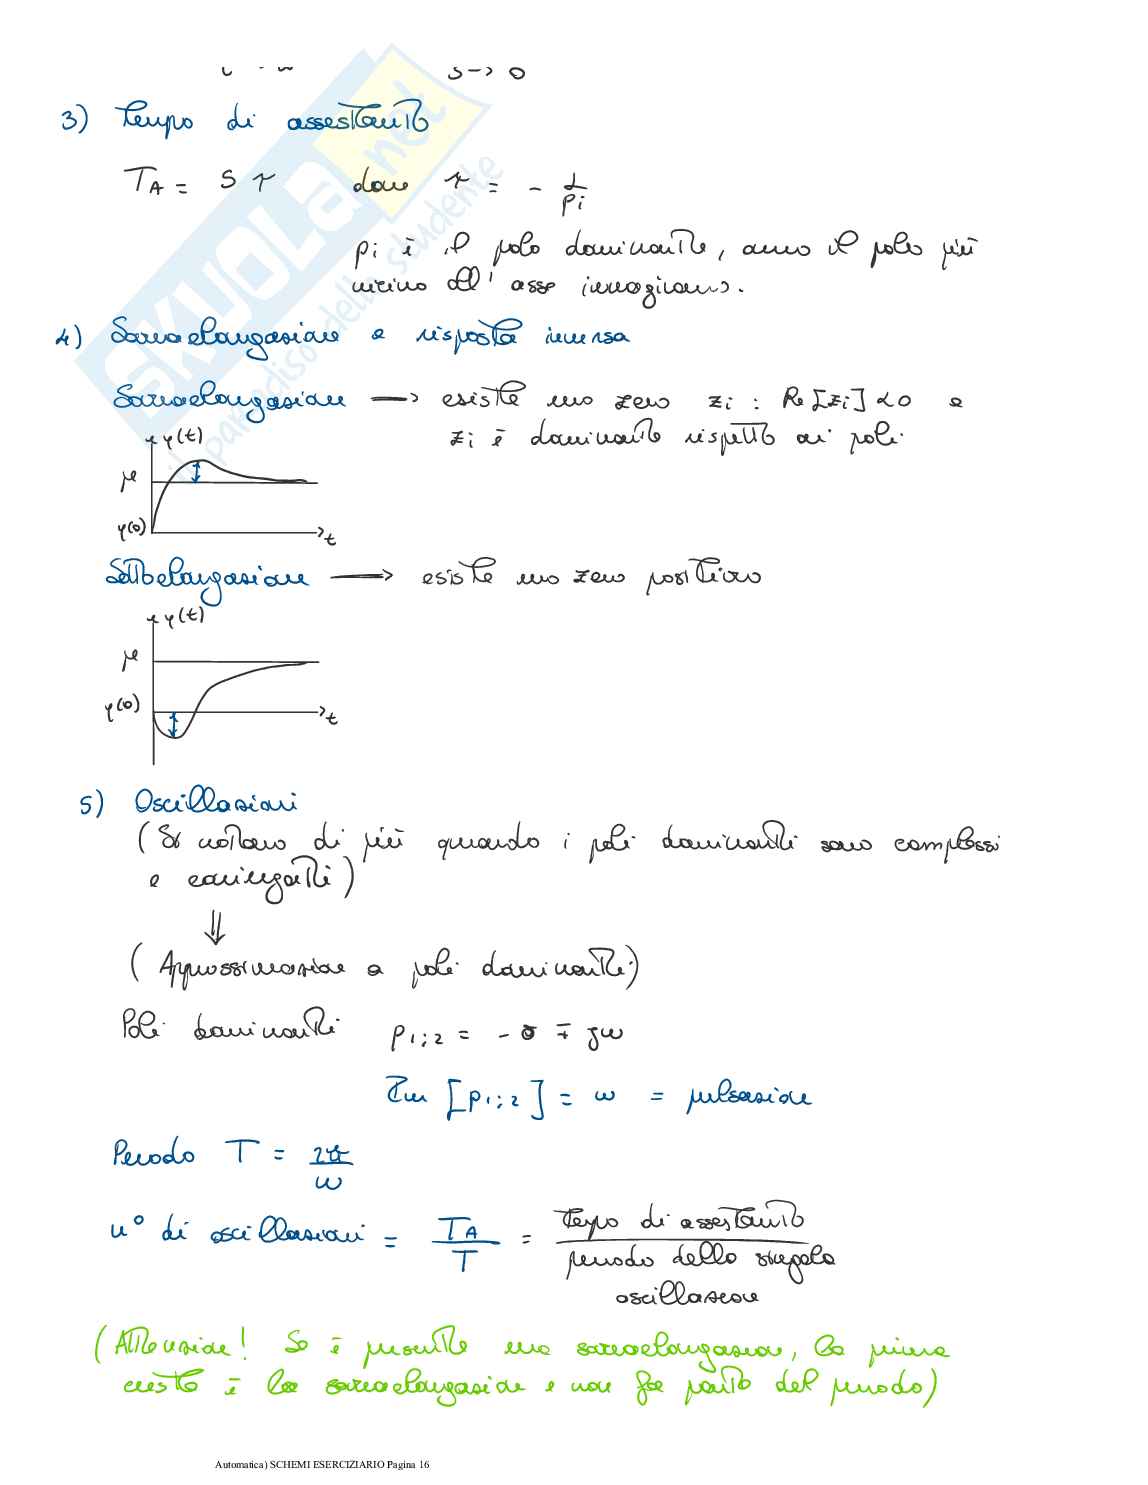 s → 0
3) Tempo di assestamento
T_A = 5 τ dove τ = - 1/p_i
p_i è il polo dominante, ovvero il polo più
vicino all'asse immaginario.
4) Sovraelongazione e risposta inversa
Sovraelongazione → esiste uno zero z_i : Re[z_i] < 0 e
z_i è dominante rispetto ai poli.
y(t)
μ
y(0)
t
Sottoelongazione → esiste uno zero positivo
y(t)
μ
y(0)
t
5) Oscillazioni
(Si notano di più quando i poli dominanti sono complessi
e coniugati)
⇓
(Approssimazione a poli dominanti)
Poli dominanti p_1;2 = - σ ∓ jω
Im [p_1;2] = ω = pulsazione
Periodo T = 2π/ω
n° di oscillazioni = T_A/T = tempo di assestamento/periodo della singola
oscillazione
(Attenzione! Se è presente una sovraelongazione, la prima
cresta è la sovraelongazione e non fa parte del periodo)
Automatica) SCHEMI ESERCIZIARIO Pagina 16
SKUOLA.net
il paradiso dello studente